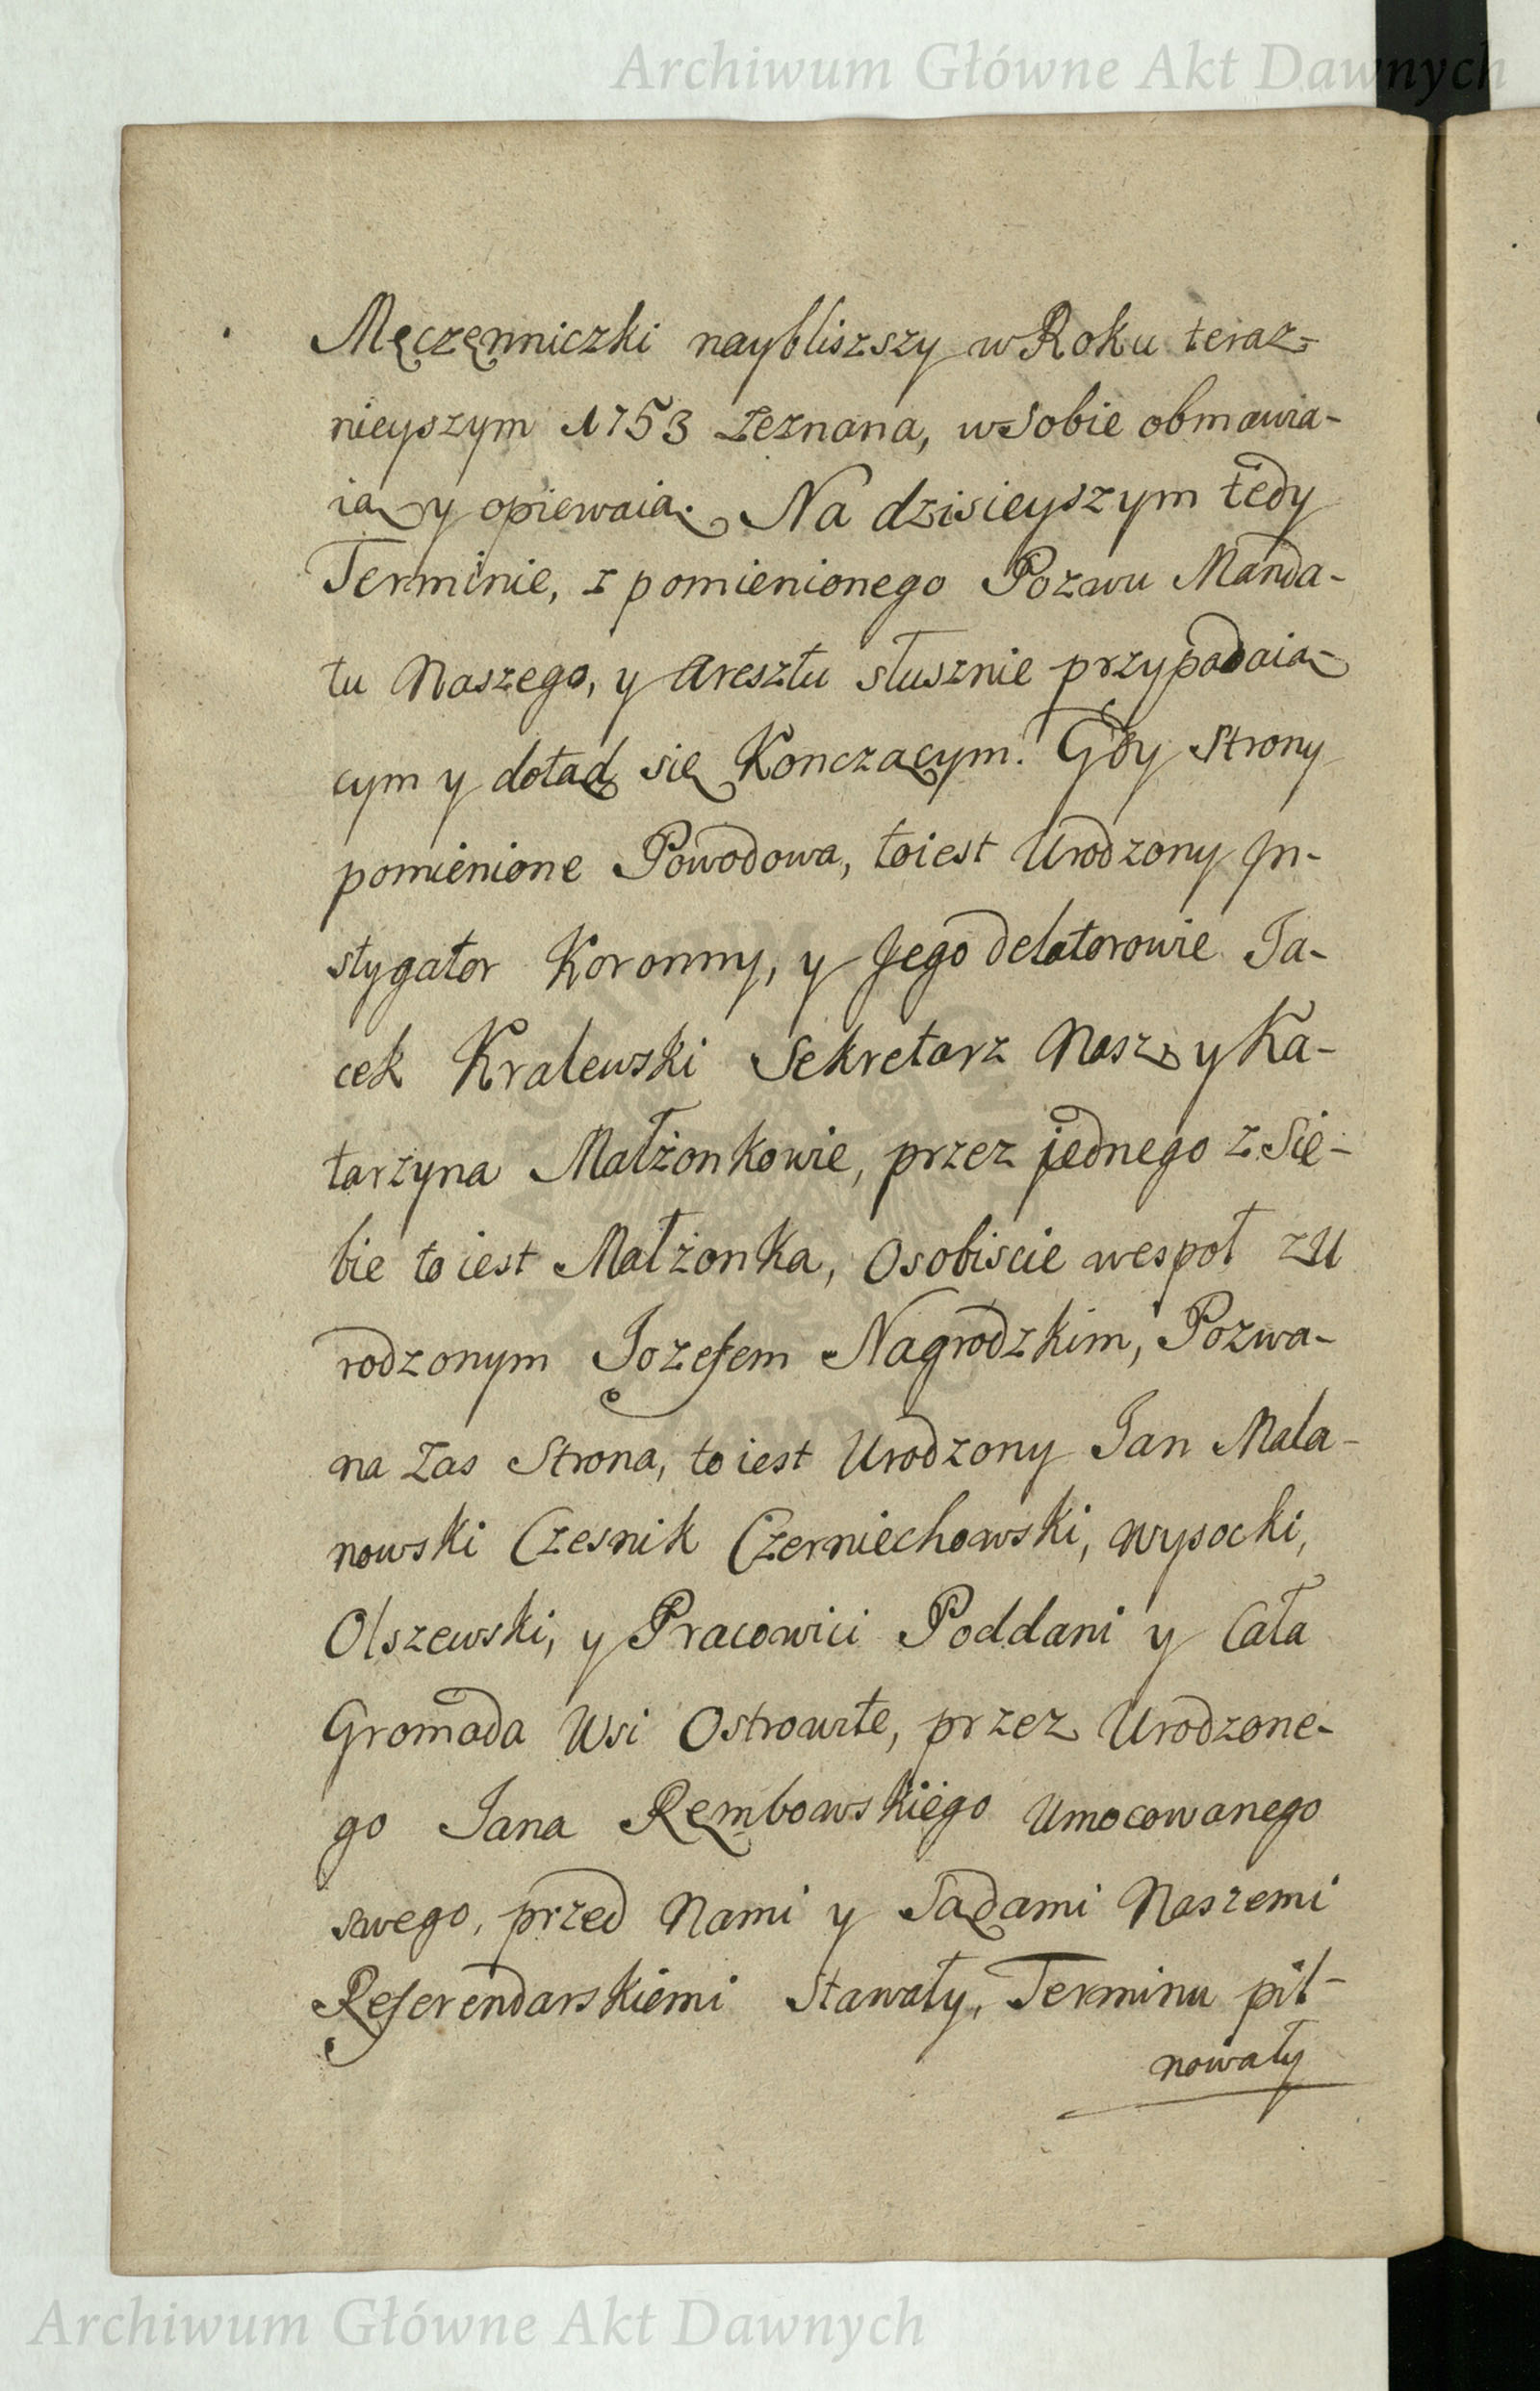 Archiwum Główne Akt Dawnych
Męczęnniczki naybliszszy w Roku teraz-
nieyszym 1753 Zeznana, w Sobie obmawia-
ią y opiewaią. Na dzisieyszym tedy
Terminie, z pomienionego Pozwu Manda-
tu Naszego, y Aresztu słusznie przypadaią-
cym y dotąd się Konczącym. Gdy Strony
pomienione Powodowa, toiest Urodzony In-
stygator Koronny, y Jego delatorowie Ja-
cek Kralewski Sekretarz Nasz, y Ka-
tarzyna Małżonkowie, przez jednego z Sie-
bie to iest Małżonka, Osobiscie wespoł z U
rodzonym Jozefem Nagrodzkim, Pozwa-
na Zas Strona, to iest Urodzony Jan Mala-
nowski Czesnik Czerniechowski, Wysocki,
Olszewski, y Pracowici Poddani y Cała
Gromada Wsi Ostrowite, przez Urodzone-
go Jana Rembowskiego Umocowanego
swego, przed Nami y Sądami Naszemi
Referendarskiemi Stawały, Terminu pil-
nowały
Archiwum Główne Akt Dawnych